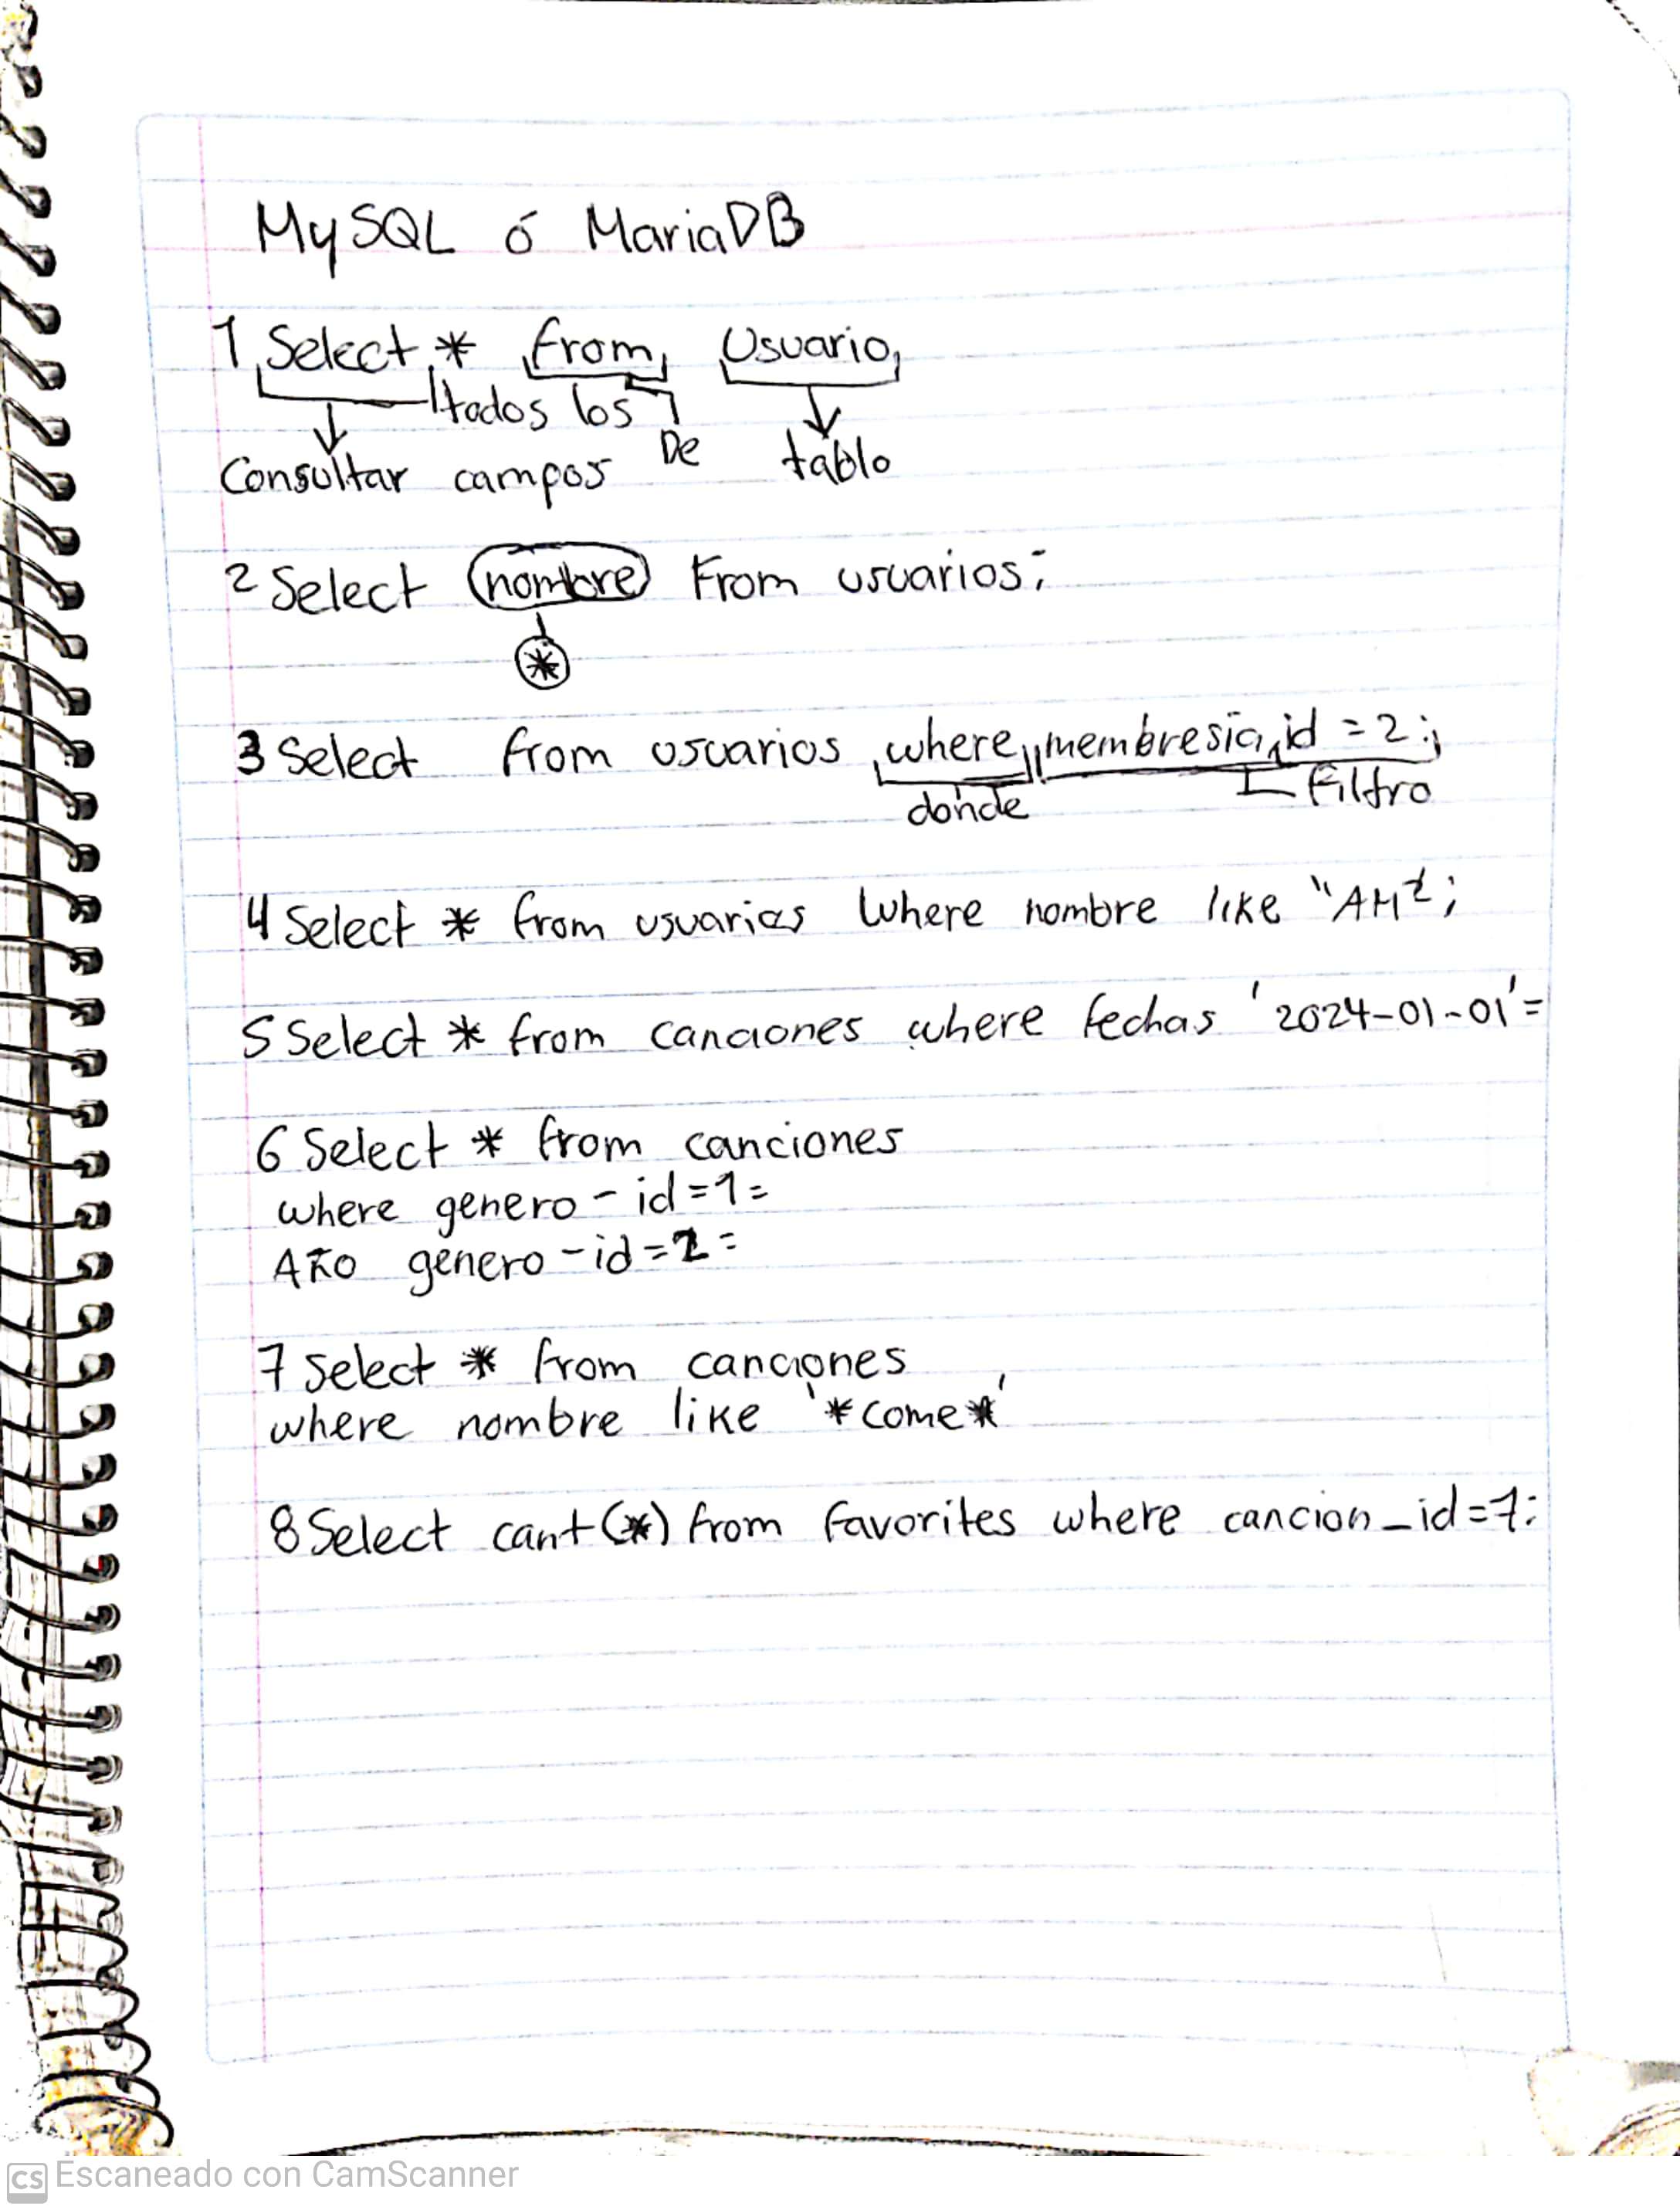 MySQL ó MariaDB
1 Select * from Usuario
todos los
Consultar campos De tabla
2 Select nombre From usuarios;
*
3 Select from usuarios where membresia_id = 2;
donde Filtro
4 Select * from usuarios Where nombre like
5 Select * from canciones where fechas '2024-01-01'=
6 Select * from canciones
where genero - id=1=
genero - id=2=
7 Select * from canciones
where nombre like '*come*'
8 Select cant(*) from favorites where cancion_id=7:
CS Escaneado con CamScanner